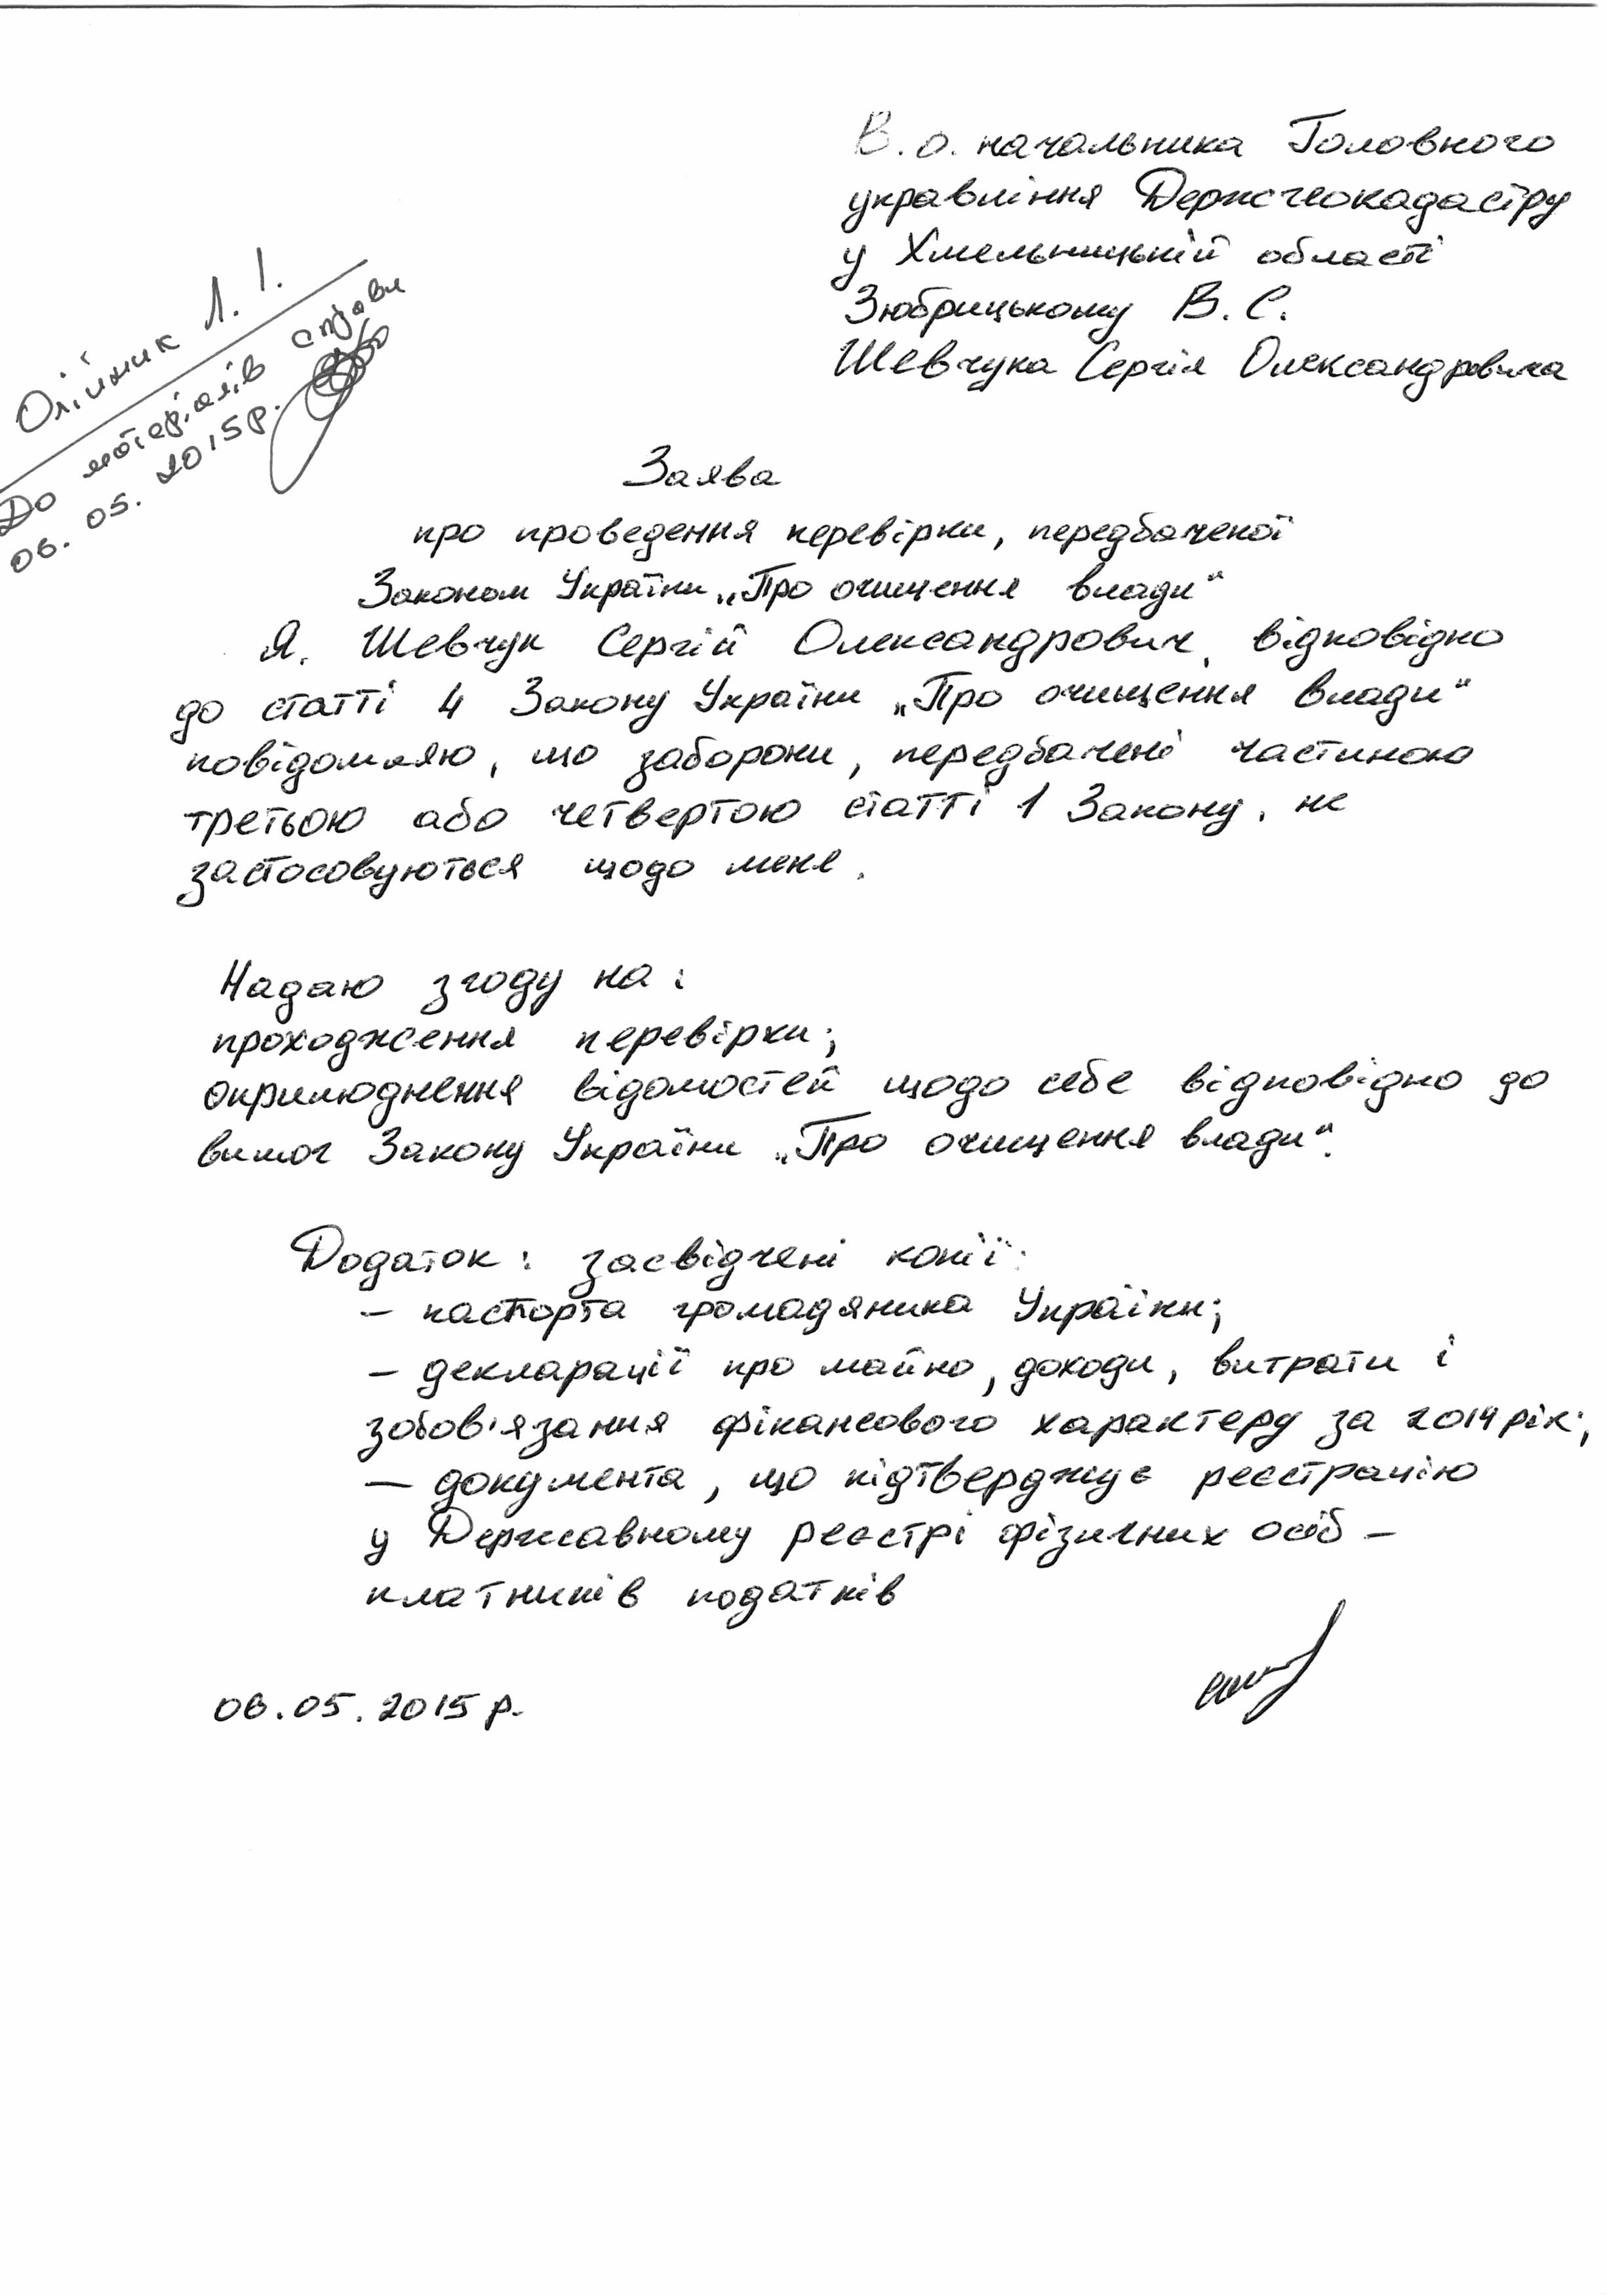 В. о. начальника Головного
управління Держгеокадастру
у Хмельницькій області
Зюбрицькому В. С.
Шевчука Сергія Олександровича
Олійник Л. І.
До матеріалів справи
06. 05. 2015р.
Заява
про проведення перевірки, передбаченої
Законом України „Про очищення влади“
Я, Шевчук Сергій Олександрович, відповідно
до статті 4 Закону України „Про очищення влади“
повідомляю, що заборони, передбачені частиною
третьою або четвертою статті 1 Закону, не
застосовуються щодо мене.
Надаю згоду на:
проходження перевірки;
оприлюднення відомостей щодо себе відповідно до
вимог Закону України „Про очищення влади“.
Додаток: засвідчені копії:
– паспорта громадяника України;
– декларації про майно, доходи, витрати і
зобов'язання фінансового характеру за 2014 рік;
– документа, що підтверджує реєстрацію
у Державному реєстрі фізичних осіб –
платників податків
06.05.2015 р.